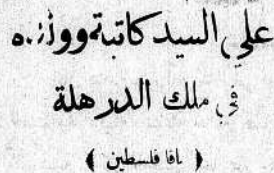 علي السيد كاتبة
في ملك الدرهلة
( يافا فلسطين )